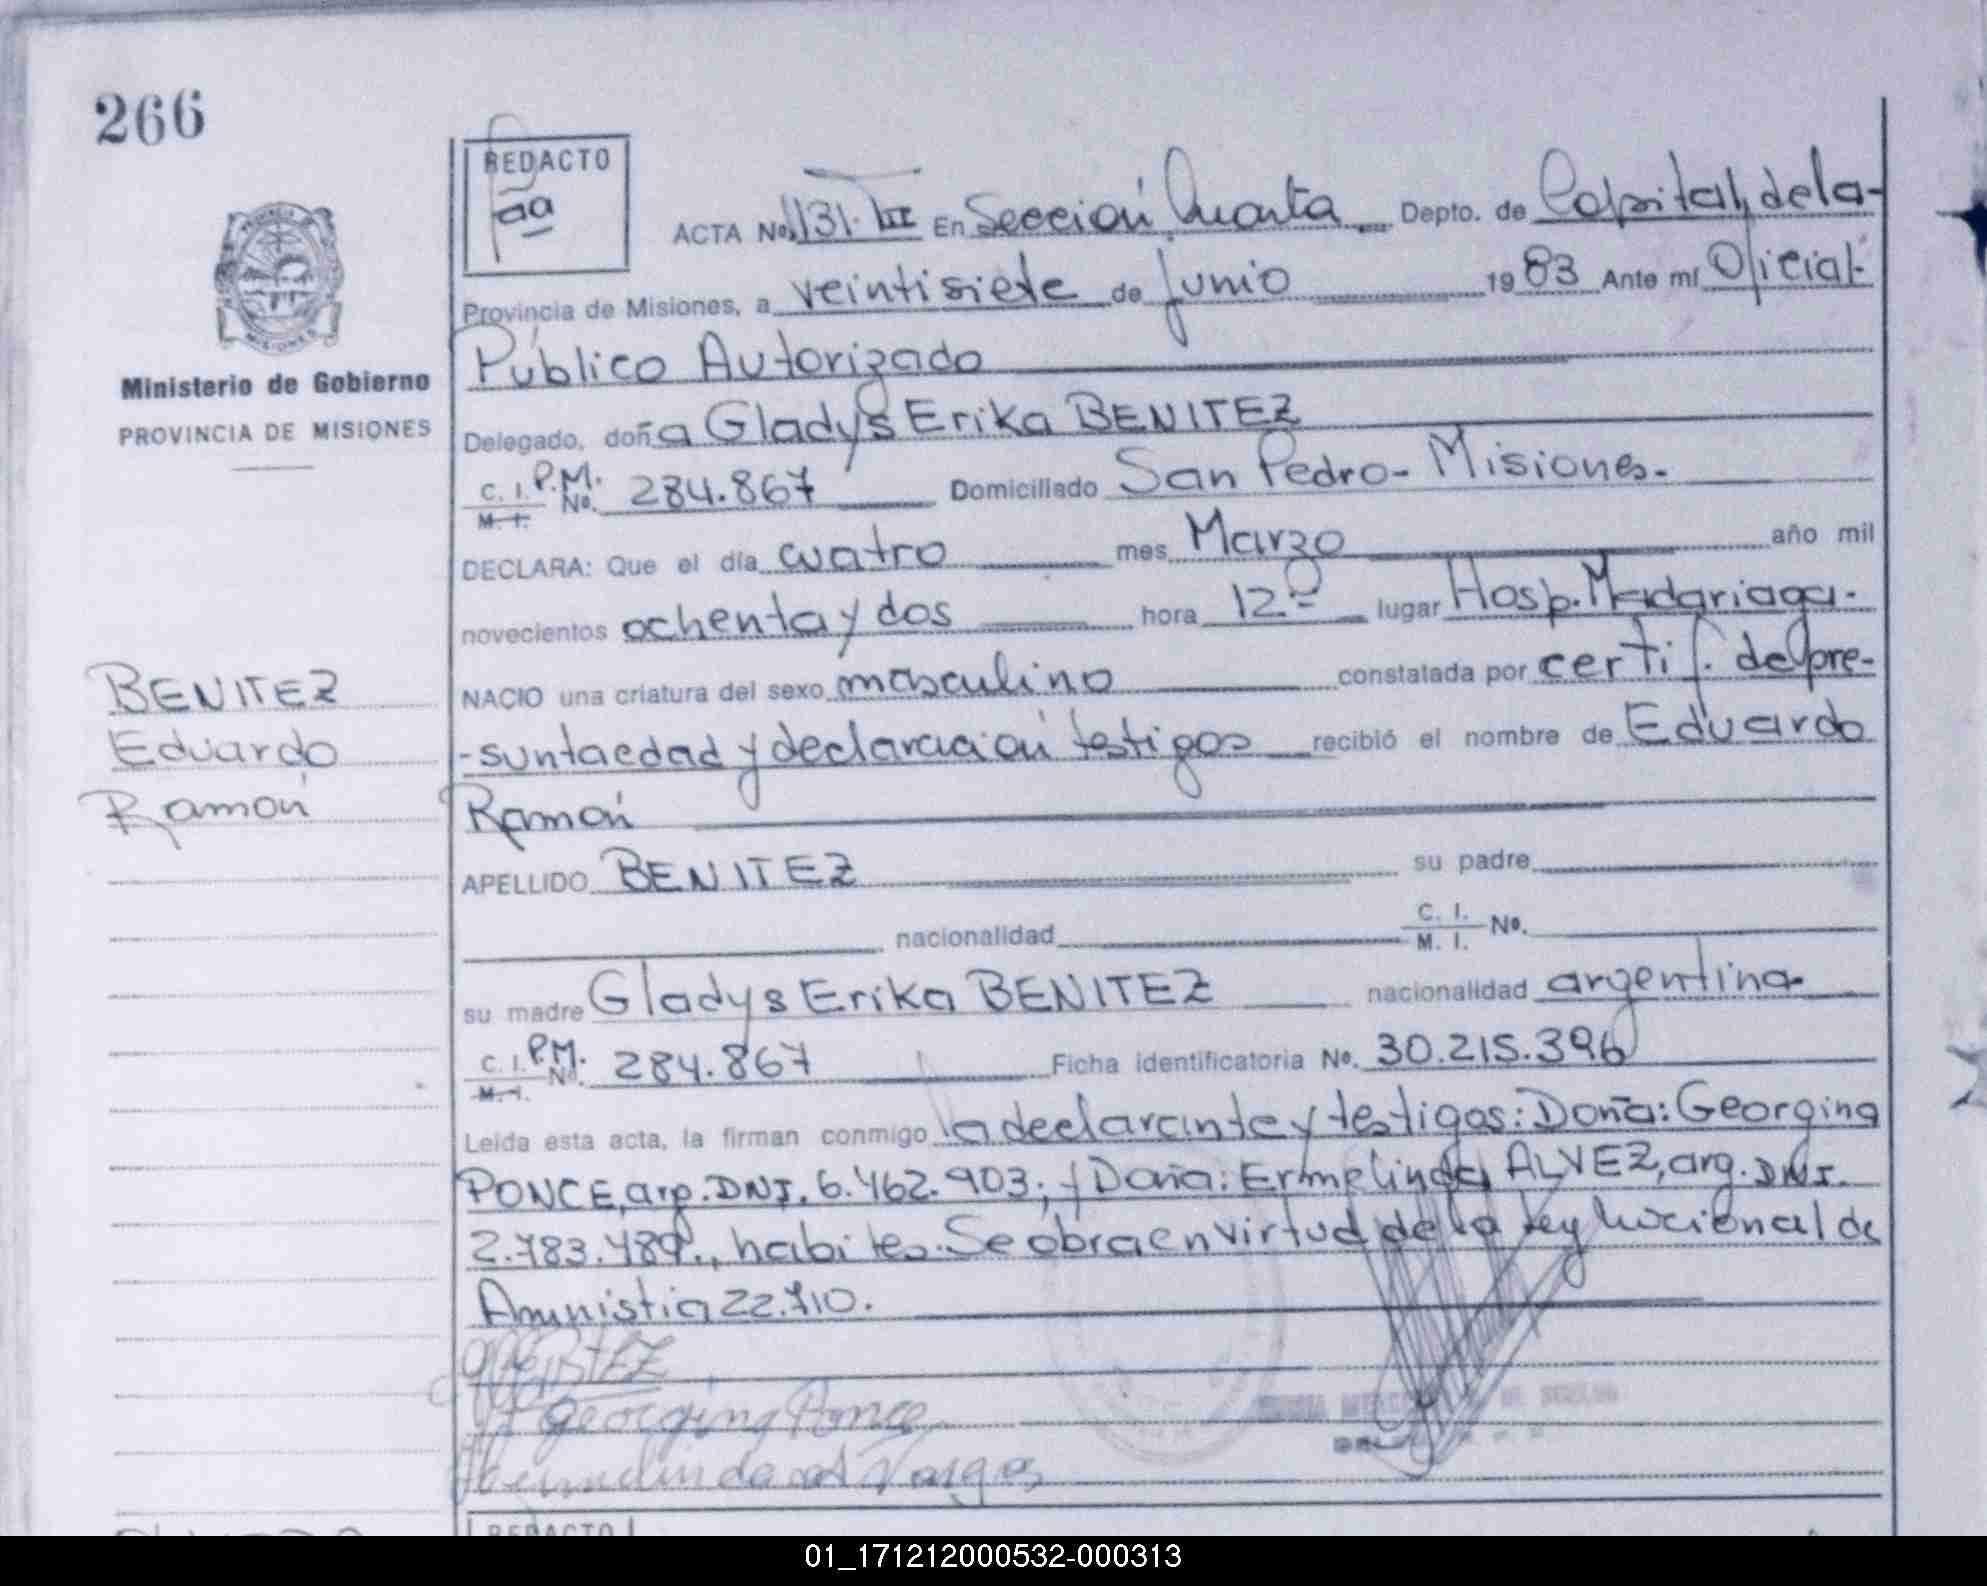 266
REDACTO
aa
ACTA No. 1131. III En Sección Cuarta Depto. de Capital, de la
Provincia de Misiones, a veintisiete de Junio 1983 Ante mí Oficial
Público Autorizado
Ministerio de Gobierno
PROVINCIA DE MISIONES
Delegado, doña Gladys Erika BENITEZ
C. I. P.M. No. 284.867 Domiciliado San Pedro - Misiones.
M. I.
DECLARA: Que el día cuatro mes Marzo año mil
novecientos ochenta y dos hora 12 lugar Hosp. Madariaga.
NACIO una criatura del sexo masculino constatada por certif. de pre-
-sunta edad y declaración testigos recibió el nombre de Eduardo
Ramón
BENITEZ
Eduardo
Ramón
APELLIDO BENITEZ su padre
nacionalidad C. I. No.
M. I.
su madre Gladys Erika BENITEZ nacionalidad argentina
C. I. P.M. No. 284.867 Ficha identificatoria No. 30.215.396
M. I.
Leída esta acta, la firman conmigo la declarante y testigos: Doña: Georgina
PONCE, arg. DNI. 6.462.903; y Doña: Ermelinda ALVEZ, arg. DNI.
2.783.489., habiles. Se obra en virtud de la Ley Nacional de
Amnistia 22.710.
Georgina Ponce
REDACTO
01_171212000532-000313